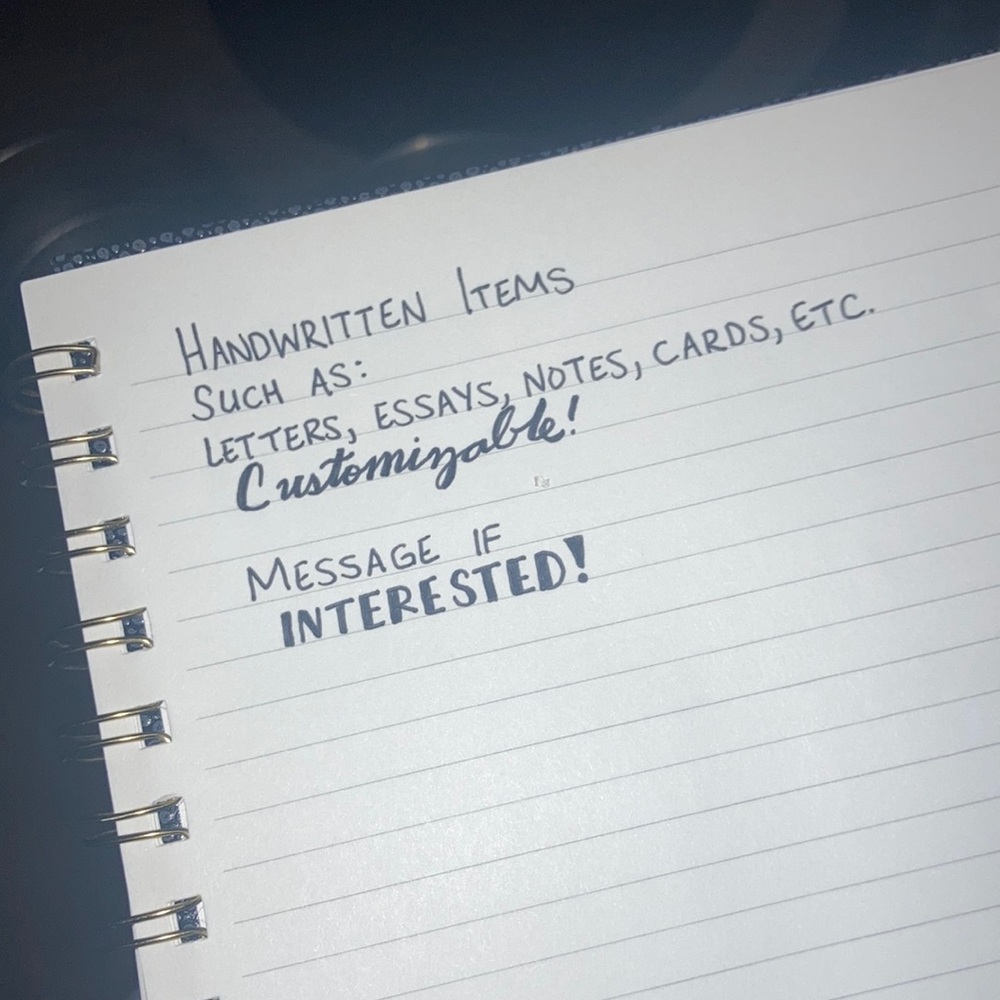 HANDWRITTEN ITEMS
SUCH AS:
LETTERS, ESSAYS, NOTES, CARDS, ETC.
Customizable!
MESSAGE IF
INTERESTED!